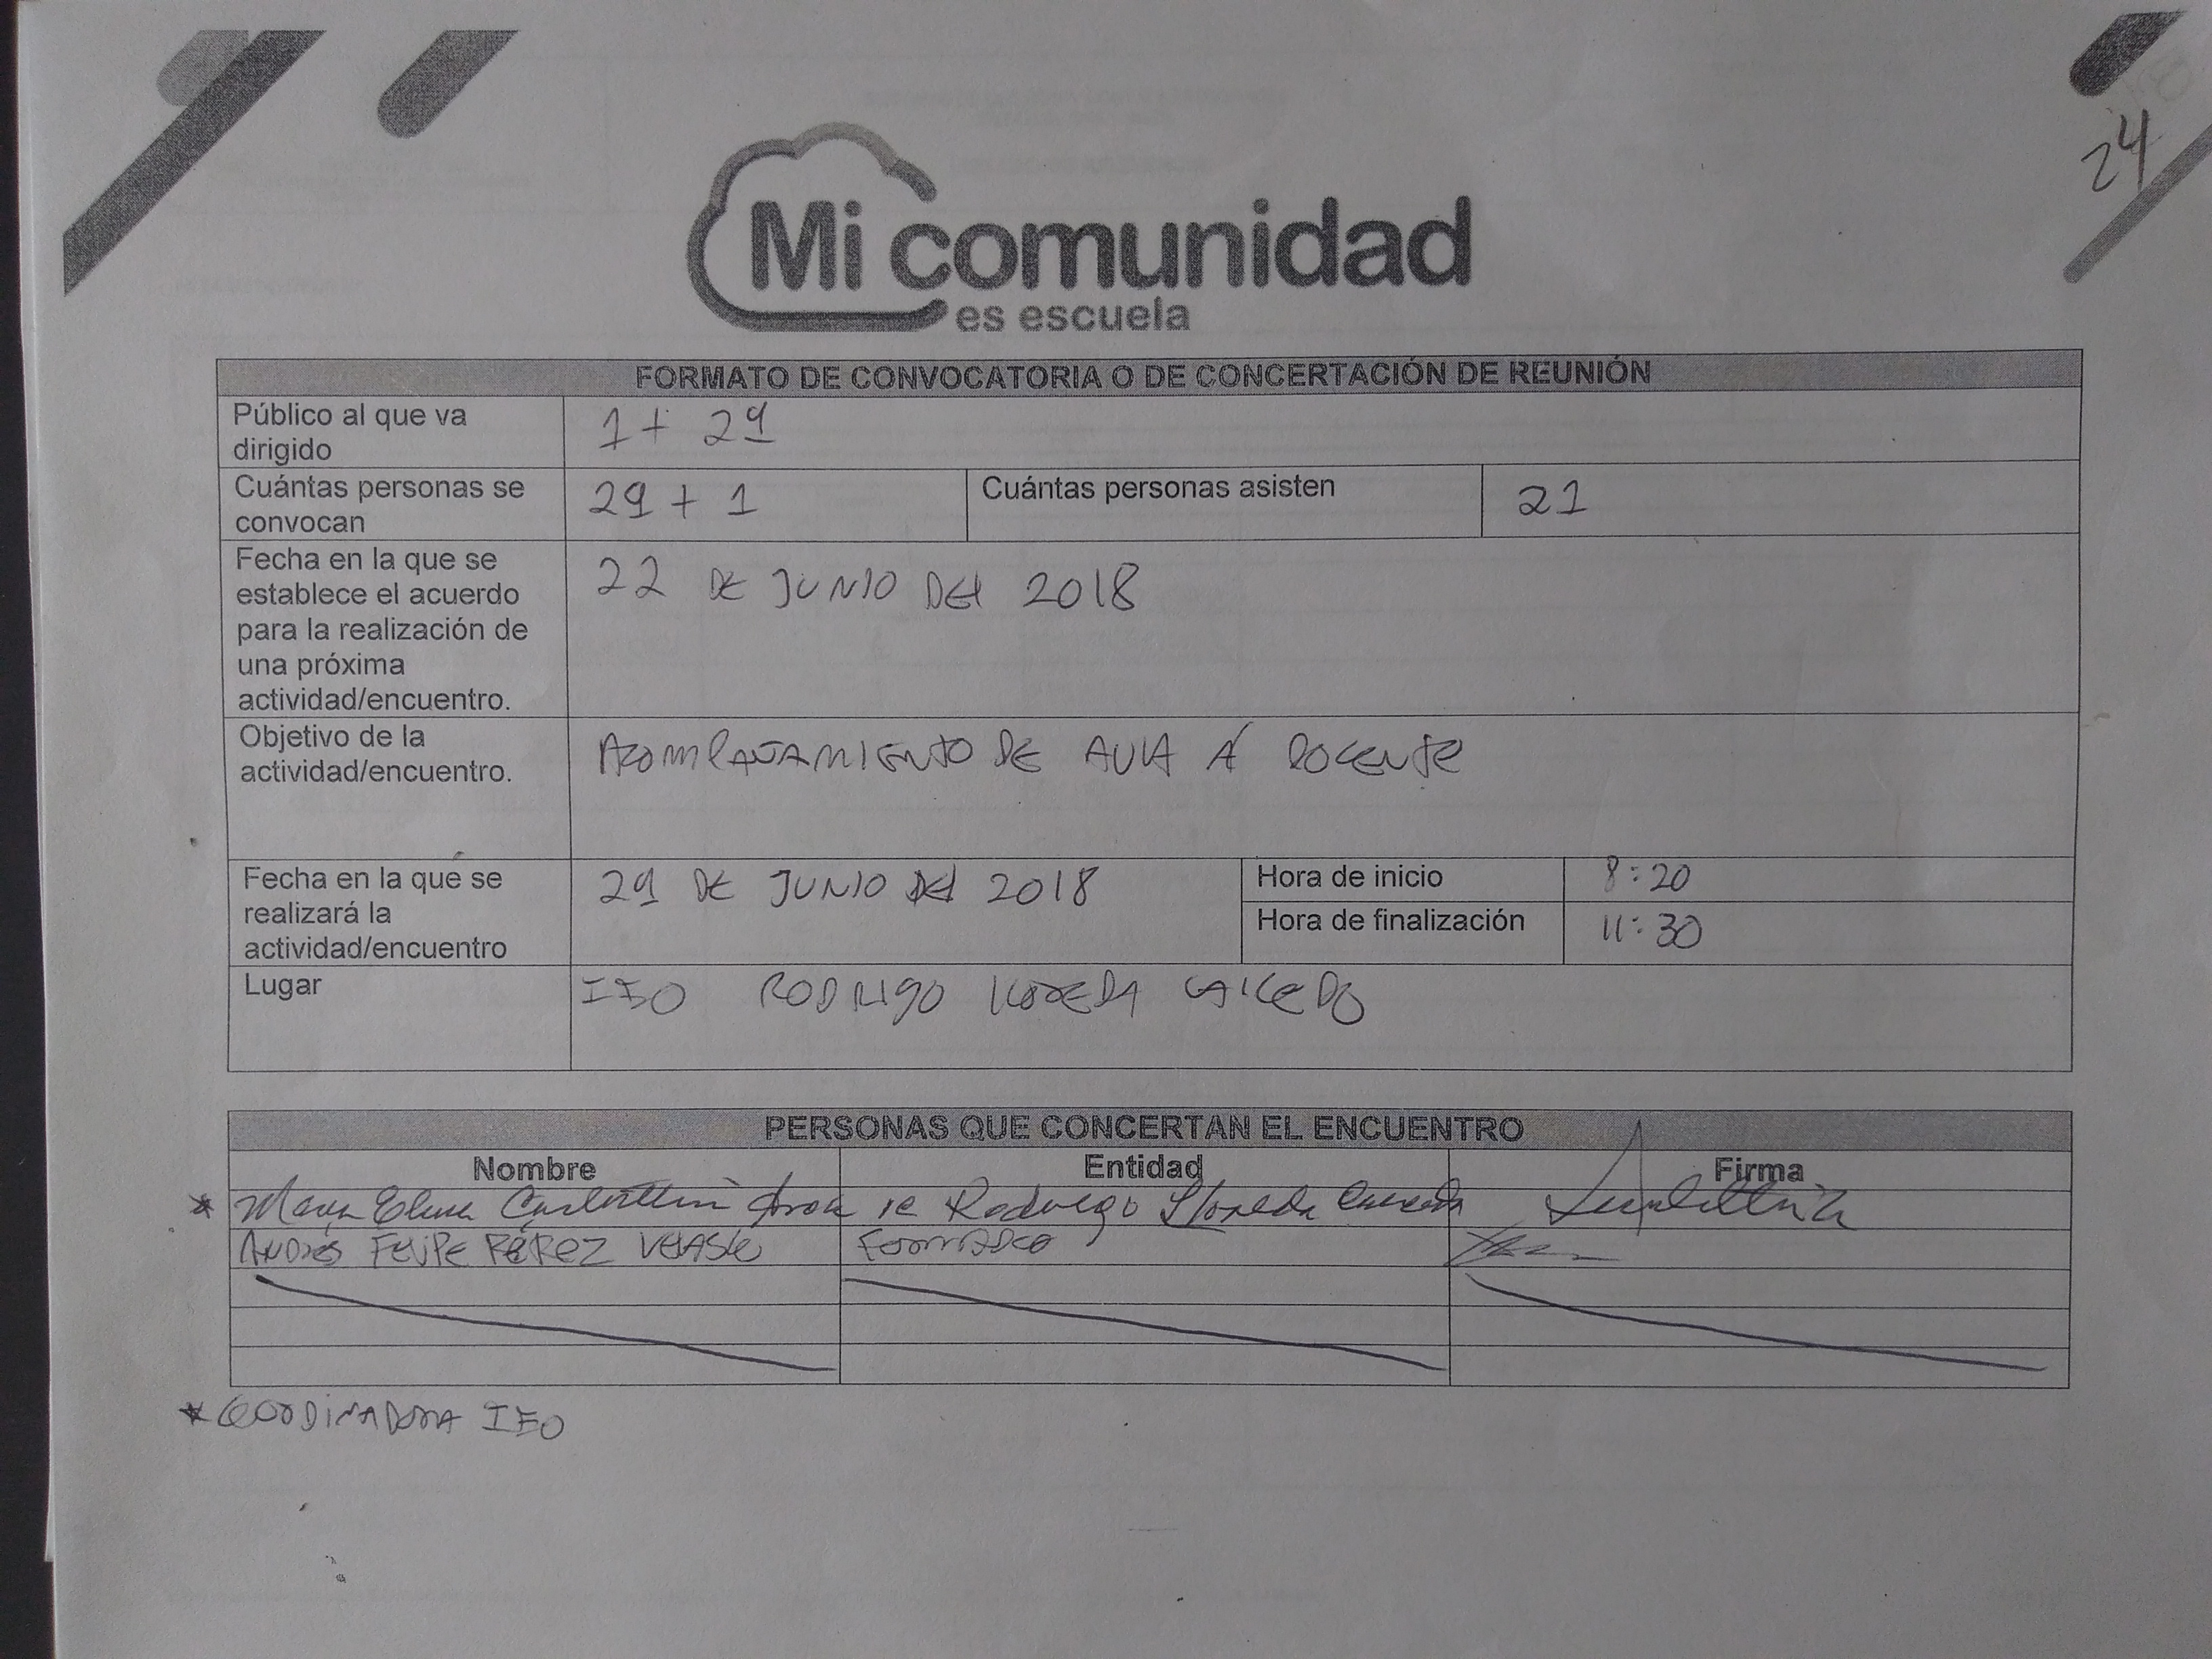 24
Mi comunidad
es escuela
FORMATO DE CONVOCATORIA O DE CONCERTACIÓN DE REUNIÓN
Público al que va
dirigido
1 + 29
Cuántas personas se
convocan
29 + 1
Cuántas personas asisten
21
Fecha en la que se
establece el acuerdo
para la realización de
una próxima
actividad/encuentro.
22 DE JUNIO DEL 2018
Objetivo de la
actividad/encuentro.
ACOMPAÑAMIENTO DE AULA A DOCENTE
Fecha en la que se
realizará la
actividad/encuentro
29 DE JUNIO DEL 2018
Hora de inicio
8:20
Hora de finalización
11:30
Lugar
IEO RODRIGO LLOREDA CAICEDO
PERSONAS QUE CONCERTAN EL ENCUENTRO
Nombre
Entidad
Firma
* Maria Elena
Rodrigo Lloreda Caicedo
ANDRES FELIPE PÉREZ VELASCO
FORMADOR
* COORDINADORA IEO